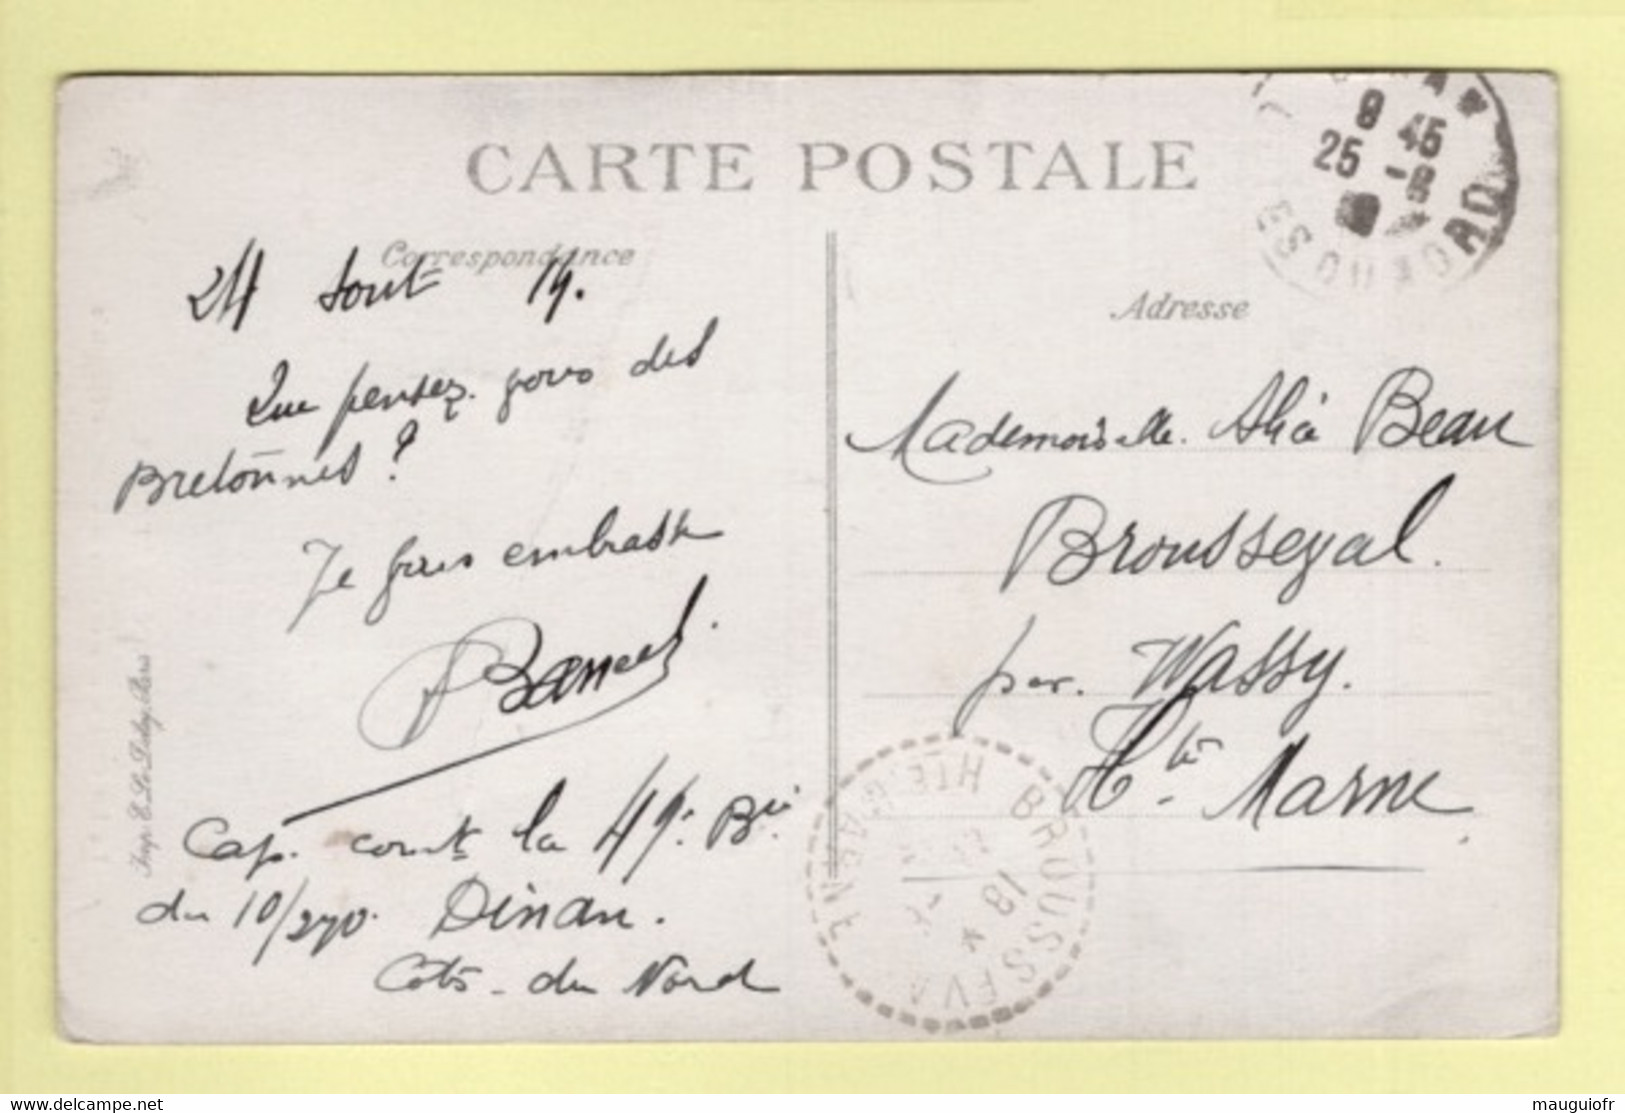 CARTE POSTALE
Correspondance
24 Aout 19.
Que pensez vous des
Bretonnes ?
Je vous embrasse
Cap. comt la 49e Bie
du 10/270. Dinan.
Côtes-du Nord
Imp. E. Le Deley, Paris
9 45
25 -8
CÔTES DU NORD
Adresse
Mademoiselle Beau
Brousseval.
par. Wassy.
Hte Marne
BROUSSEVAL
HTE MARNE
18
mauguiofr